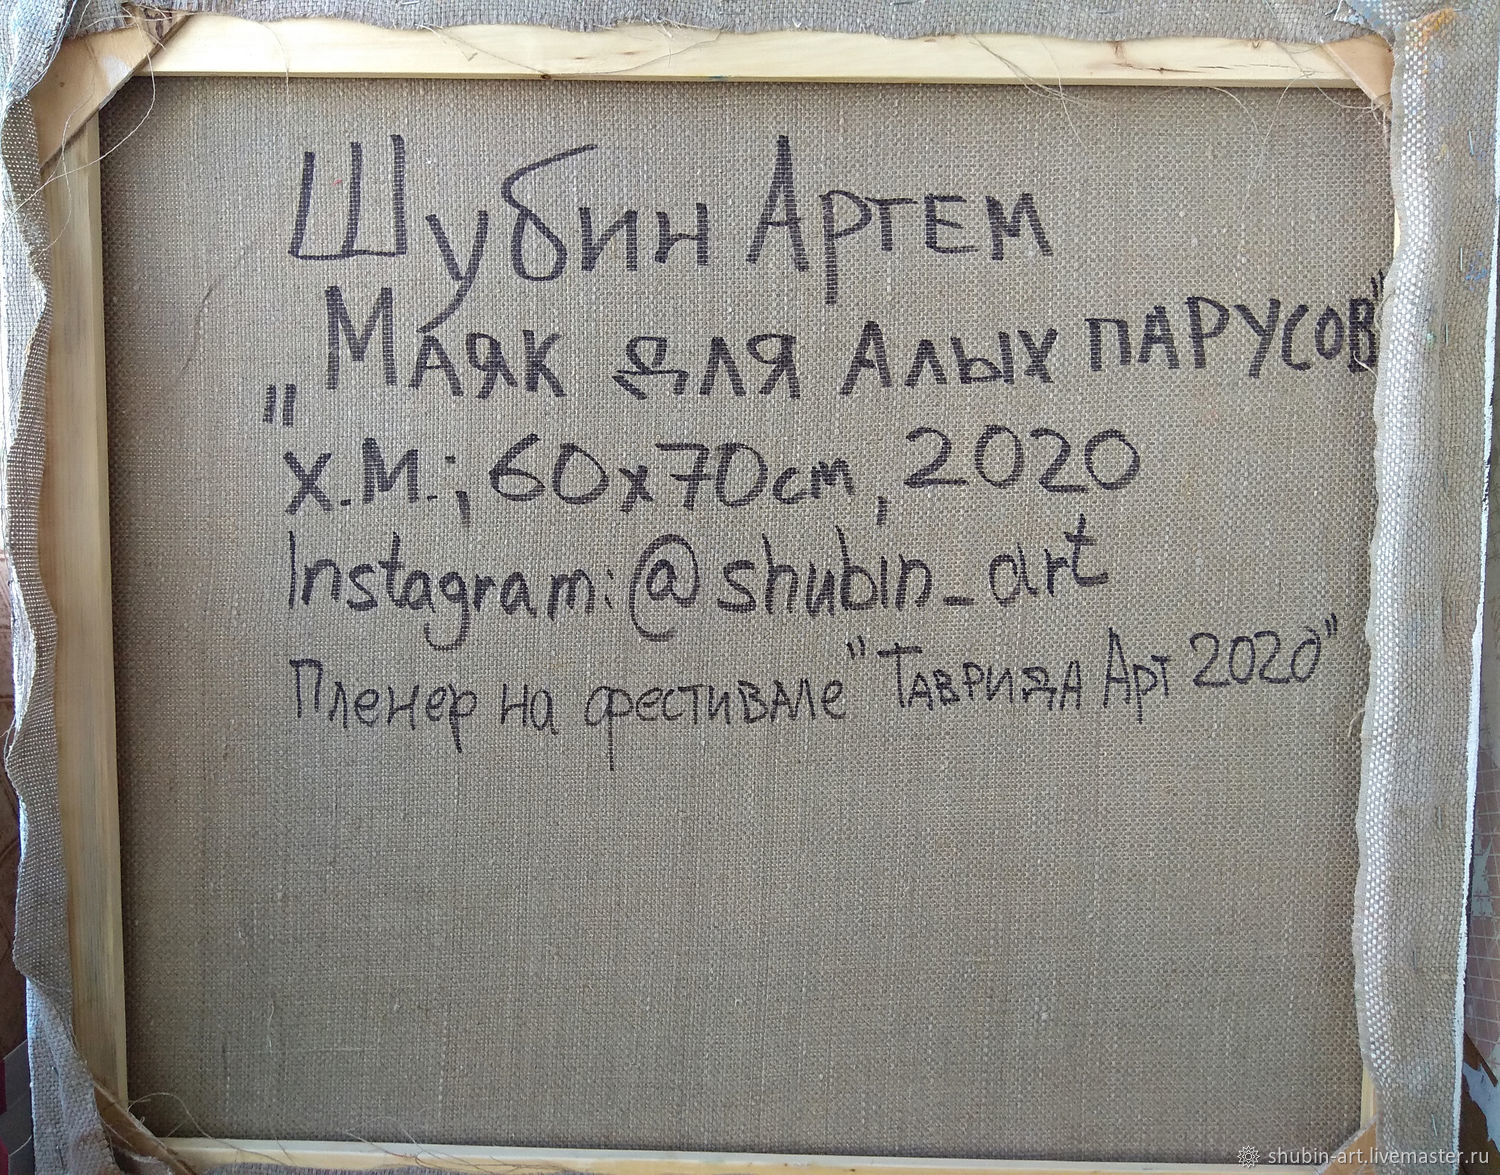 Шубин Артем
„Маяк для Алых парусов"
х.м.; 60х70см, 2020
Instagram: @shubin_art
Пленер на фестивале "Таврида Арт 2020"
shubin-art.livemaster.ru